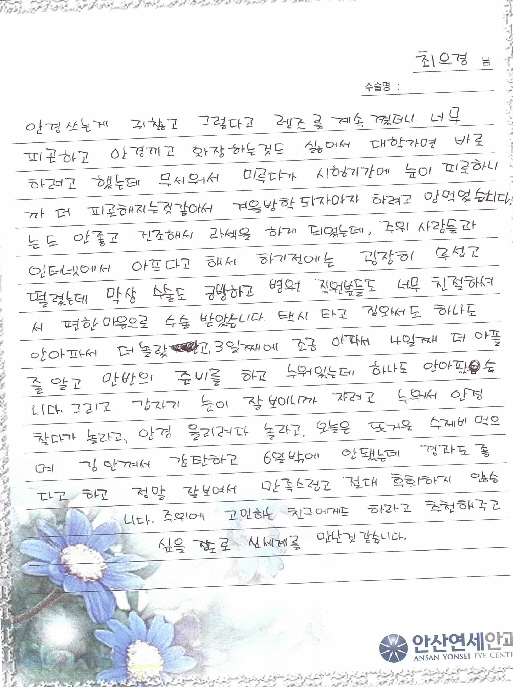 최으경 님
수술명 :
안경쓰는게 귀찮고 그렇다고 렌즈를 계속 꼈더니 너무
피곤하고 안경끼고 화장하는것도 싫어서 대학가면 바로
하려고 했는데 무서워서 미루다가 시험기간에 눈이 피로하니
까 더 피로해지는것같아서 겨울방학 되자마자 하려고 맘먹었습니다.
눈도 안좋고 건조해서 라섹을 하게 되었는데, 주위 사람들과
인터넷에서 아프다고 해서 하기전에는 굉장히 무섭고
떨렸는데 막상 수술도 금방하고 병원 직원분들도 너무 친절하셔
서 편한마음으로 수술 받았습니다. 택시 타고 집와서도 하나도
안아파서 더 놀랐고, 3일째에 조금 아파서 4일째 더 아플
줄 알고 만반의 준비를 하고 누워있는데 하나도 안아팠습
니다. 그리고 갑자기 눈이 잘보이니까 자려고 누워서 안경
찾다가 놀라고, 안경 올리려다 놀라고, 오늘은 뜨거운 수제비 먹으
며 김안껴서 감탄하고 6일밖에 안됐는데 경과도 좋
다고 하고 정말 잘보여서 만족스럽고 절대 후회하지 않습
니다. 주위에 고민하는 친구에게도 하라고 추천해주고
싶을 정도로 신세계를 만난것 같습니다.
안산연세안과
ANSAN YONSEI EYE CENTE